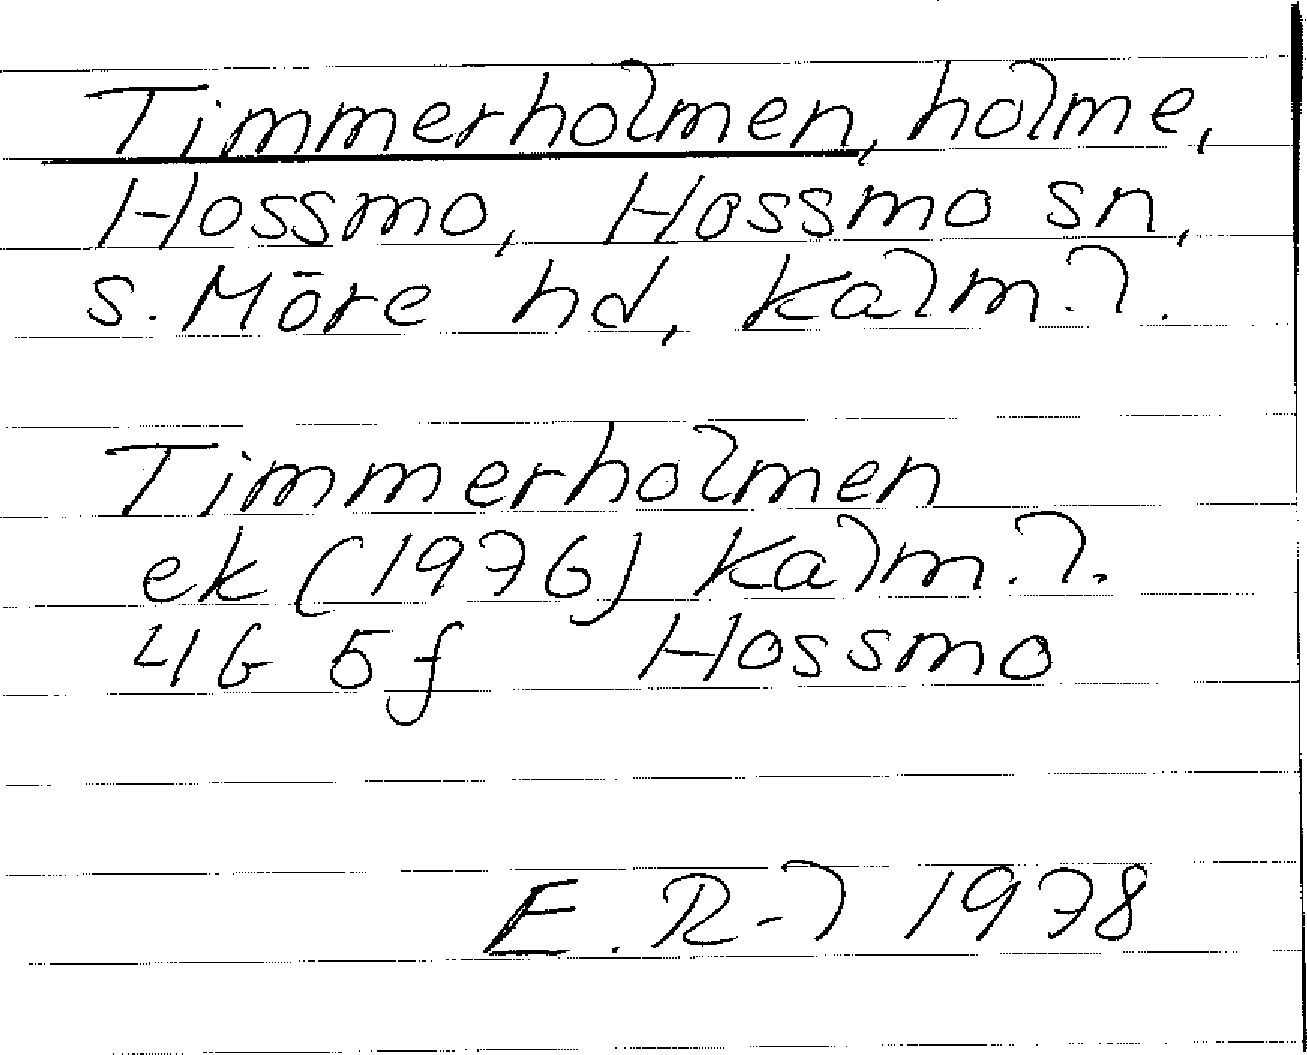 Timmerholmen, holme,
Hossmo, Hossmo sn,
s. Möre hd, Kalm. l.
Timmerholmen
ek (1976) Kalm. l.
4G 5f Hossmo
E. R-l 1978